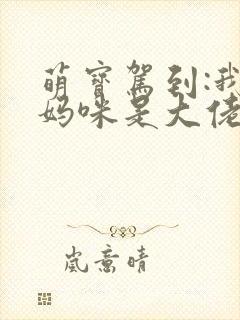 萌寶駕到:我
媽咪是大佬
嵐意晴